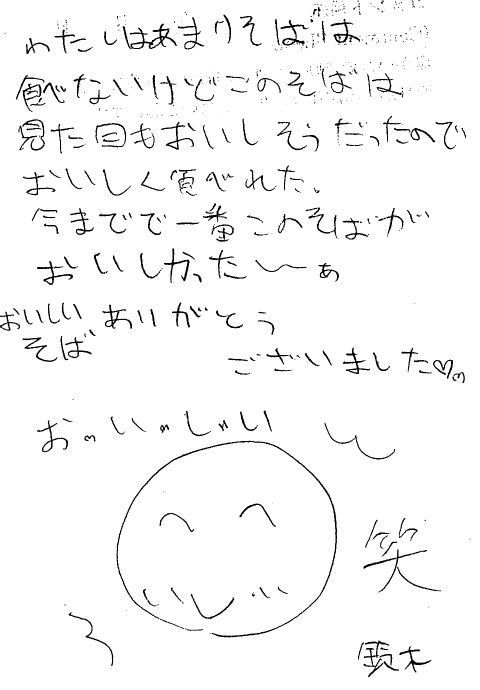 わたしはあまりそばは
食べないけどこのそばは
見た目もおいしそうだったので
おいしく食べれた。
今までで一番このそばが
おいしかった〜ぁ
おいしい
そば
ありがとう
ございました♡
お〃い〃し〃い
笑
鈴木